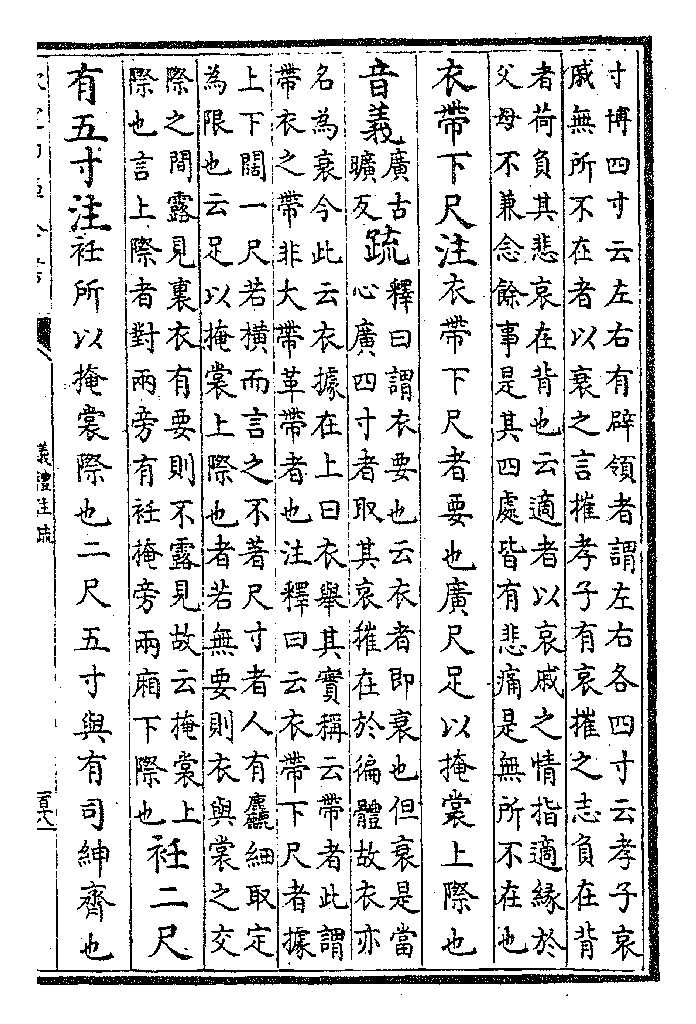 寸博四寸云左右有辟領者謂左右各四寸云孝子哀
戚無所不在者以衰之言摧孝子有哀摧之志負在背
者荷負其悲哀在背也云適者以哀戚之情指適縁於
父母不兼念餘事是其四處皆有悲痛是無所不在也
衣帶下尺注衣帶下尺者要也廣尺足以掩裳上際也
音義廣古
曠反
疏釋曰謂衣要也云衣者即衰也但衰是當
心廣四寸者取其哀摧在於徧體故衣亦
名為衰今此云衣據在上曰衣舉其實稱云帶者此謂
帶衣之帶非大帶革帶者也注釋曰云衣帶下尺者據
上下闊一尺若横而言之不著尺寸者人有麤細取定
為限也云足以掩裳上際也者若無要則衣與裳之交
際之間露見裏衣有要則不露見故云掩裳上
際也言上際者對兩旁有衽掩旁兩廂下際也
衽二尺
有五寸注衽所以掩裳際也二尺五寸與有司紳齊也
禮注疏